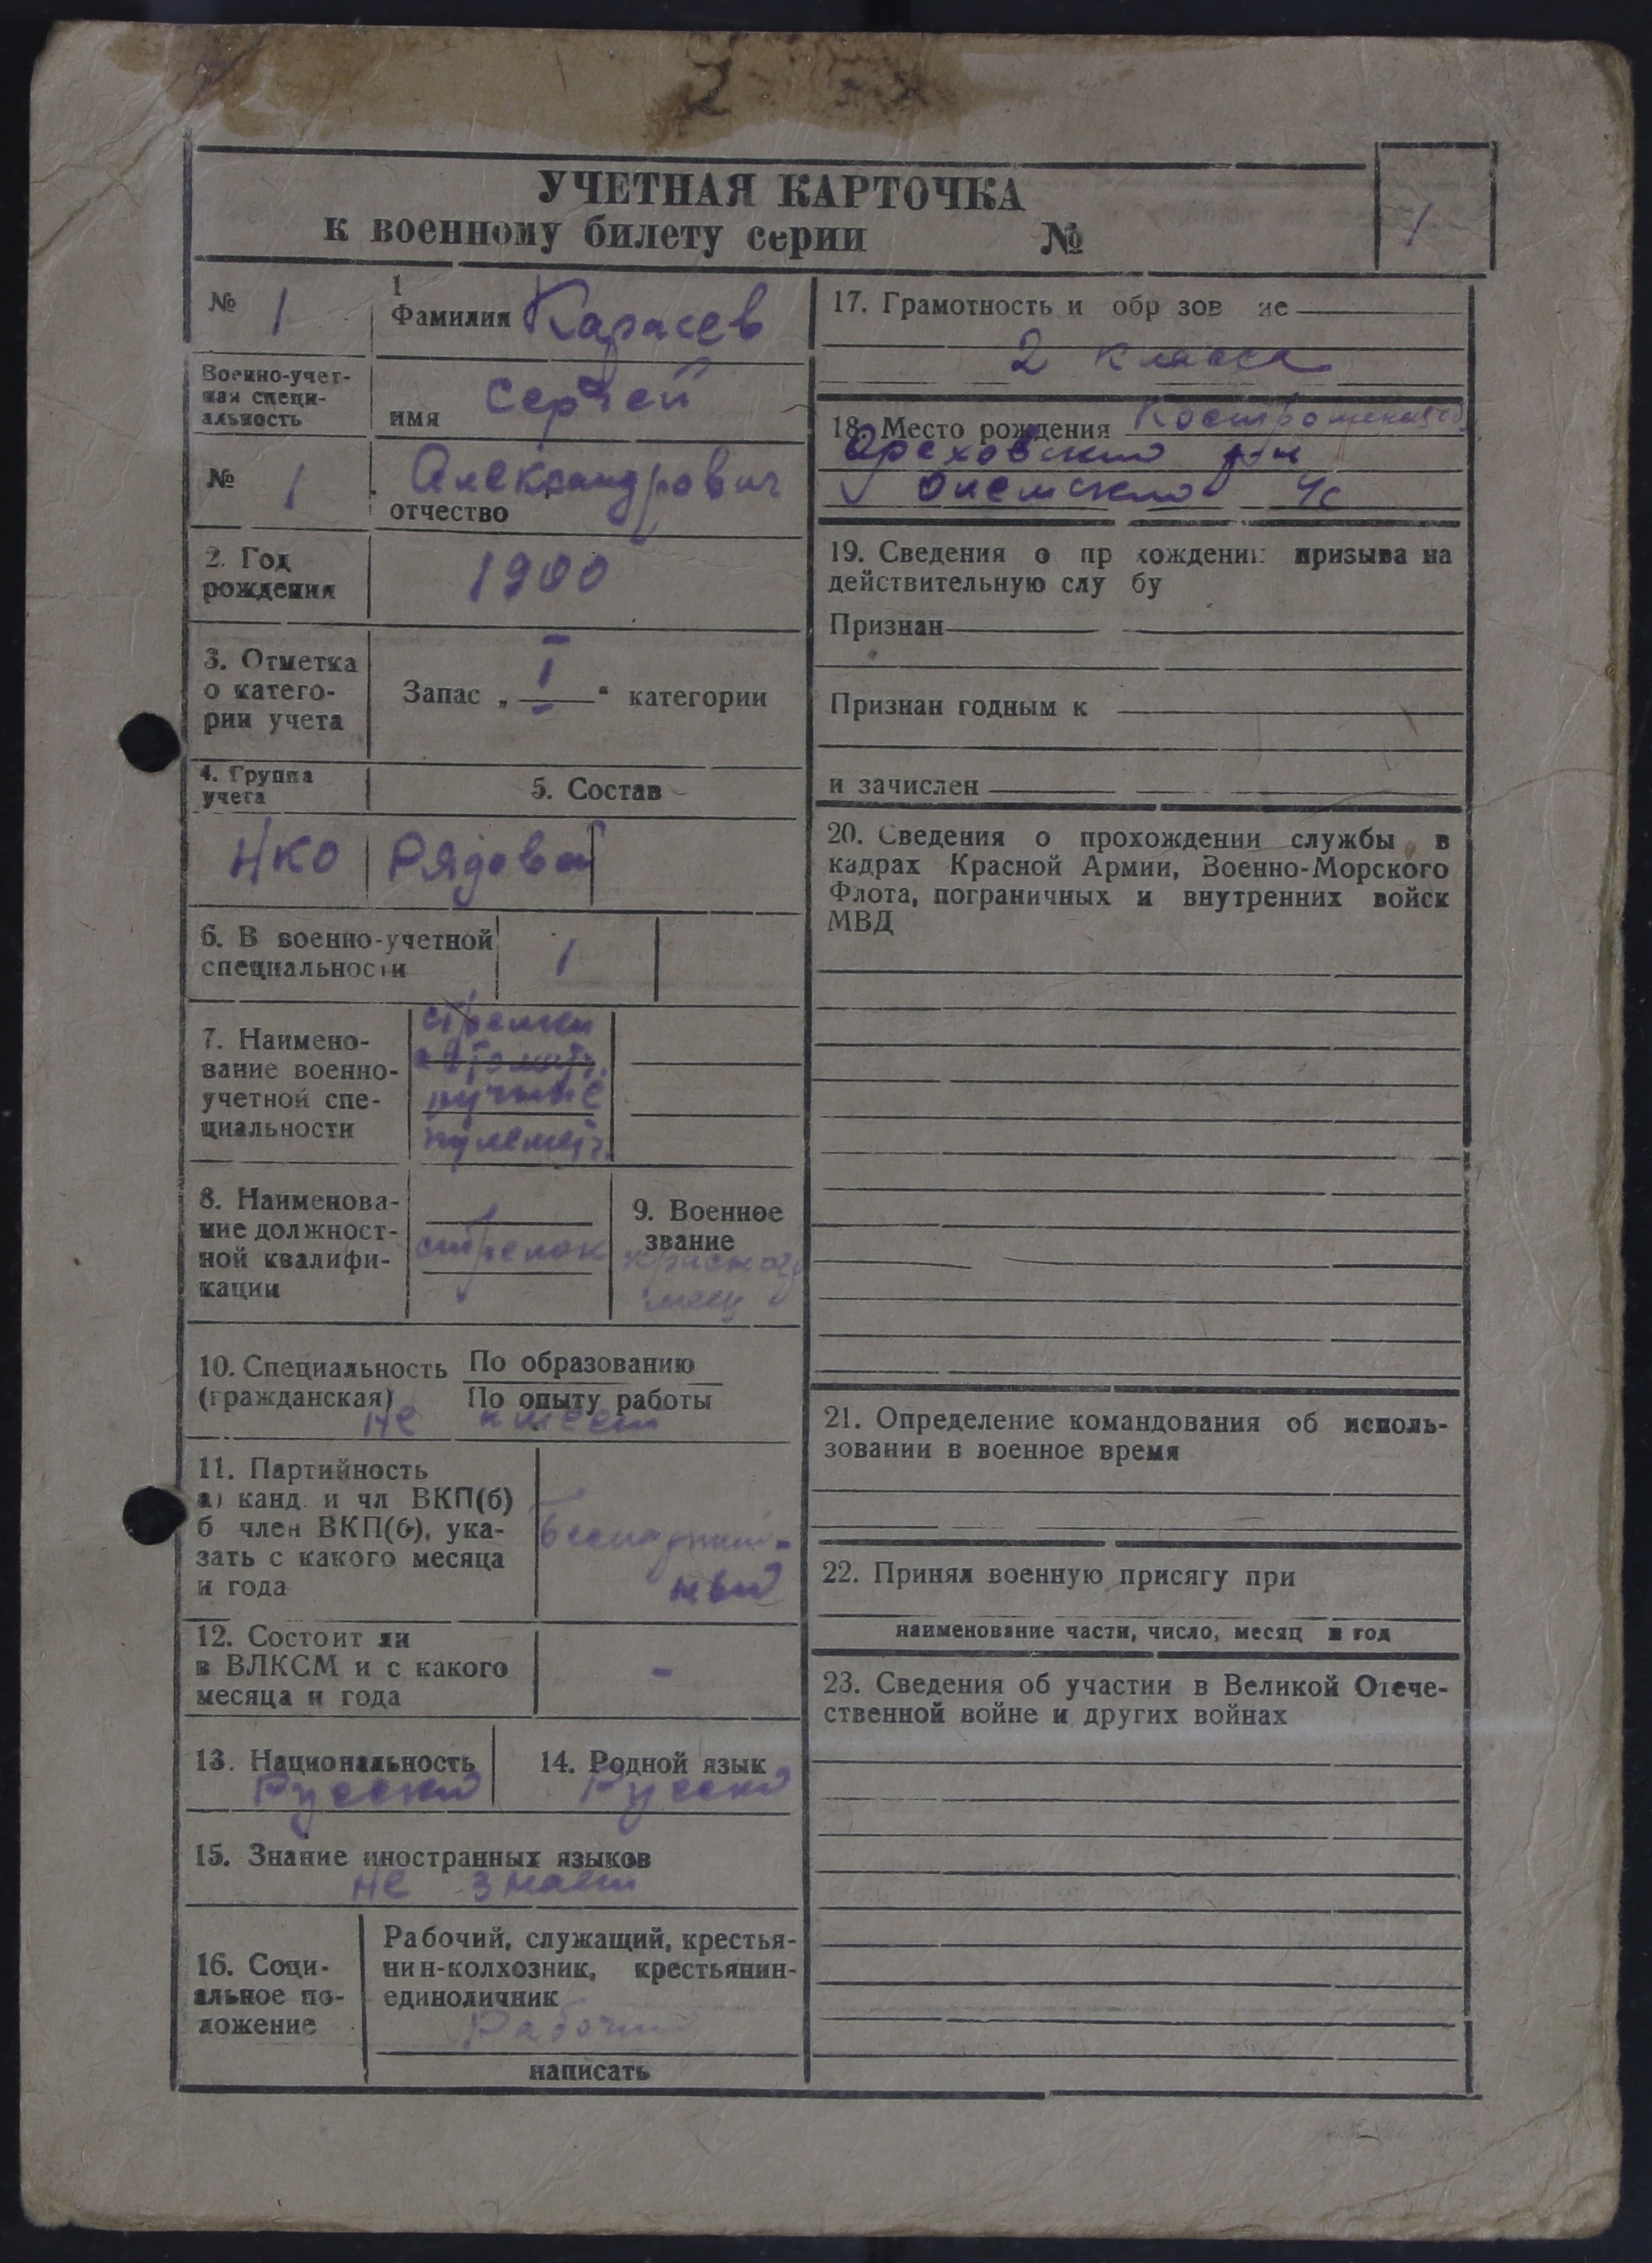 УЧЕТНАЯ КАРТОЧКА
к военному билету серии №
1
№ 1
1
Фамилия Карасев
Военно-учет-
ная специ-
альность
имя Сергей
№ 1
Александрович
отчество
2. Год
рождения
1900
3. Отметка
о катего-
рии учета
Запас „ I “ категории
4. Группа
учета
5. Состав
НКО Рядовой
6. В военно-учетной
специальности
1
7. Наимено-
вание военно-
учетной спе-
циальности
стрелки
автомат.
ручные
пулемет.
8. Наименова-
ние должност-
ной квалифи-
кации
стрелок
9. Военное
звание
красноар
меец
10. Специальность
(гражданская)
По образованию
По опыту работы
не имеет
11. Партийность
а) канд. и чл ВКП(б)
б член ВКП(б), ука-
зать с какого месяца
и года
Беспартий-
ный
12. Состоит ли
в ВЛКСМ и с какого
месяца и года
-
13. Национальность
Русский
14. Родной язык
Русский
15. Знание иностранных языков
не знает
16. Соци-
альное по-
ложение
Рабочий, служащий, крестья-
нин-колхозник, крестьянин-
единоличник
Рабочий
написать
17. Грамотность и обр зов ие
2 класса
18. Место рождения
Ореховский р-н
с/с
19. Сведения о пр хождении призыва на
действительную слу бу
Признан
Признан годным к
и зачислен
20. Сведения о прохождении службы в
кадрах Красной Армии, Военно-Морского
Флота, пограничных и внутренних войск
МВД
21. Определение командования об исполь-
зовании в военное время
22. Принял военную присягу при
наименование части, число, месяц и год
23. Сведения об участии в Великой Отече-
ственной войне и других войнах